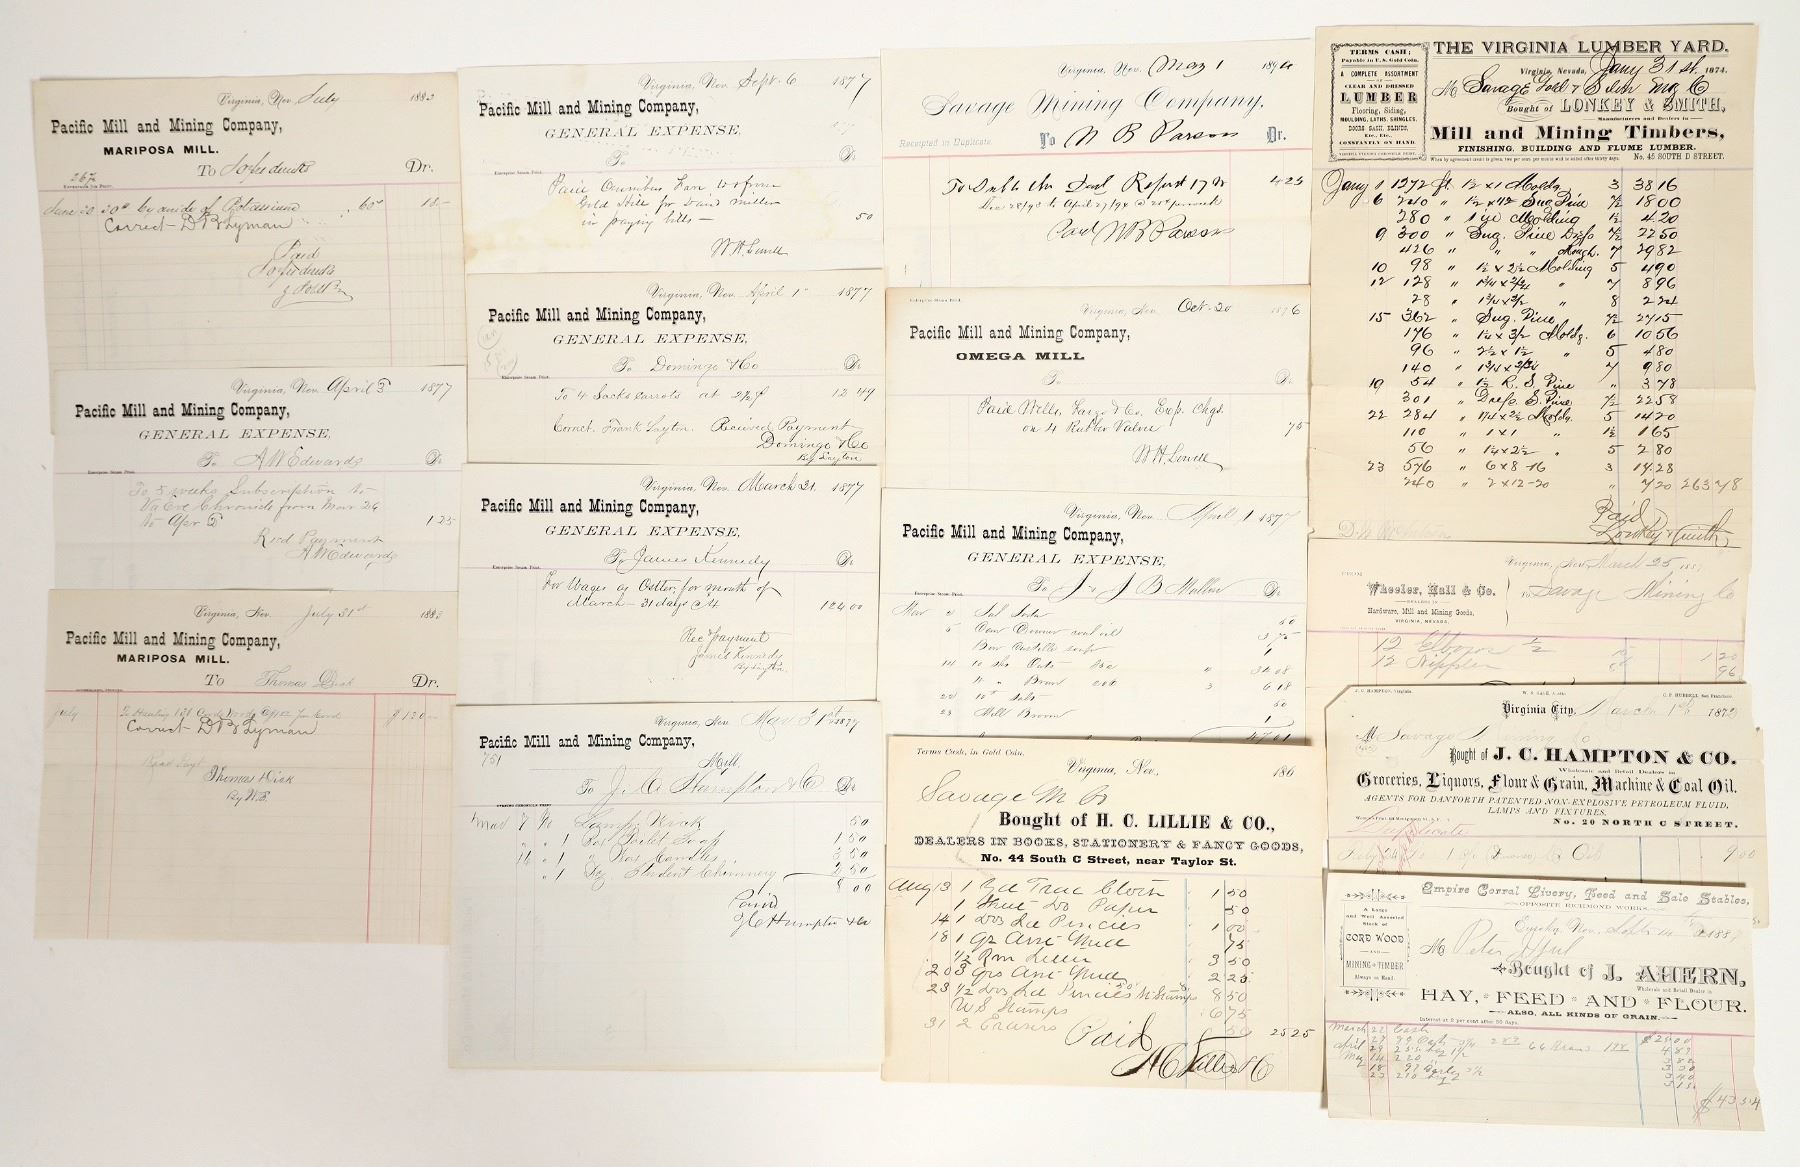 Virginia, Nev. July 1883
Pacific Mill and Mining Company,
MARIPOSA MILL.
To Dr.
267
June 30 30# Cyanide of Potassium 60¢ 18.—
Correct - D B Lyman
Paid
Virginia, Nev. April 5 1877
Pacific Mill and Mining Company,
GENERAL EXPENSE,
To A W Edwards Dr.
Enterprise Steam Print.
To 5 weeks Subscription to
Va Eve Chronicle from Mar 26
to Apr 5 1.25
Recd Payment
A W Edwards
Virginia, Nev. July 31st 1883
Pacific Mill and Mining Company,
MARIPOSA MILL.
To Thomas Dick Dr.
July To Hauling 131 Cords Wood
Correct - D B Lyman
Thomas Dick
Virginia, Nev. Sept. 6 1877
Pacific Mill and Mining Company,
GENERAL EXPENSE,
To Dr.
Enterprise Steam Print.
Paid Omnibus Fare, to & from
Gold Hill for Isaac Miller
in paying bills — 50
W. H. Lowell
Virginia, Nev. April 1st 1877
Pacific Mill and Mining Company,
GENERAL EXPENSE,
To Domingo & Co Dr.
Enterprise Steam Print.
To 4 Sacks carrots at 12 49
Correct. Frank Layton. Received Payment
Domingo & Co
By Layton
Virginia, Nev. March 31. 1877
Pacific Mill and Mining Company,
GENERAL EXPENSE,
To James Kennedy Dr.
Enterprise Steam Print.
For Wages as Ostler, for month of
March — 31 days @ 4 124 00
Rec'd payment
James Kennedy
By Layton.
Virginia, Nev. Mar 31st 1877
Pacific Mill and Mining Company,
751 Mill.
To J. C. Hampton & Co Dr.
Mar 7 To Lamp Wick 50
" " 1 Box Toilet Soap 1 50
14 " 1 " Wax Candles 3 50
" 1 Dz. Student Chimney 2 50
8 00
Paid
J C Hampton & Co
Virginia, Nev. May 1 189
Savage Mining Company,
Receipted in Duplicate. To N B Parson Dr.
Paid N B Parson
Enterprise Steam Print.
Virginia, Nev. Oct. 20 1876
Pacific Mill and Mining Company,
OMEGA MILL
To Dr.
Paid Wells, Fargo & Co. Exp. Chgs.
on 4 Rubber Valves 75
W. H. Lowell
Virginia, Nev. April 1 1877
Pacific Mill and Mining Company,
GENERAL EXPENSE,
To J & J B Mallon Dr.
Enterprise Steam Print.
Mar 2 Sal Soda 50
5 Can Downer coal oil 3 75
Box Castile soap 1
Mill Broom 1
Terms Cash, in Gold Coin.
Virginia, Nev. 186
Savage M Co
Bought of H. C. LILLIE & CO.,
DEALERS IN BOOKS, STATIONERY & FANCY GOODS,
No. 44 South C Street, near Taylor St.
Aug 13 1 Yd Trac Cloth 1 50
1 Shut Do Paper 50
14 1 Doz Ld Pincies 1 00
18 1 Qr 75
1/2 Rm Letter 3 50
20 3 Qrs 2 25
W S Stamps 6 75
31 2 Erasers 50 25 25
Paid
H C Lillie & Co
TERMS CASH;
Payable in U. S. Gold Coin.
A COMPLETE ASSORTMENT
OF
CLEAR AND DRESSED
LUMBER
Flooring, Siding,
MOULDING, LATHS, SHINGLES,
DOORS, SASH, BLINDS,
Etc., Etc.,
CONSTANTLY ON HAND.
THE VIRGINIA LUMBER YARD.
Virginia, Nevada, Jany 31st. 1874.
M Savage Gold & Silver Mg Co
Bought of LONKEY & SMITH,
Manufacturers and Dealers in
Mill and Mining Timbers,
FINISHING, BUILDING AND FLUME LUMBER.
No. 45 SOUTH D STREET.
Jany 1 1272 ft 1½ x 1 Molds 3 38 16
6 240 " Sug Pine 7½ 18 00
280 " Molding 1½ 4 20
9 300 " Sug. Pine Drefs 7½ 22 50
426 " " " Rough. 7 29 82
10 98 " 1½ x 2½ Molding 5 4 90
12 128 " " 7 8 96
28 " " 8 2 24
15 362 " Sug. Pine 7½ 27 15
176 " Moldg. 6 10 56
96 " 2½ x 1½ " 5 4 80
140 " " 7 9 80
19 54 " 1½ R. S Pine " 3 78
301 " Drefs S. Pine 7½ 22 58
22 284 " Molds. 5 14 20
110 " 1 x 1 " 1½ 1 65
56 " " 5 2 80
23 576 " 6 x 8-16 3 17 28
240 " 2 x 12-20 " 7 20 263 78
Paid
Lonkey & Smith
Virginia, Nev. March 25 188
FROM
Wheeler, Hall & Co.
DEALERS IN
Hardware, Mill and Mining Goods,
VIRGINIA, NEVADA.
To Savage Mining Co
12 Elbows ½ 1 20
12 Nipples 96
J. C. HAMPTON, Virginia. C. P. HUBBELL, San Francisco.
Virginia City, March 1st 187
M Savage Mining Co
Bought of J. C. HAMPTON & CO.
Wholesale and Retail Dealers in
Groceries, Liquors, Flour & Grain, Machine & Coal Oil.
AGENTS FOR DANFORTH PATENTED NON-EXPLOSIVE PETROLEUM FLUID,
LAMPS AND FIXTURES.
No. 20 NORTH C STREET.
Duplicate
9.00
Empire Corral Livery, Feed and Sale Stables,
OPPOSITE RICHMOND WORKS
A Large
and Well Assorted
Stock of
CORD WOOD
AND
MINING TIMBER
Always on Hand.
Eureka, Nev. Sept. 14 188
M Peter
Bought of J. AHERN,
Wholesale and Retail Dealer in
HAY, FEED AND FLOUR.
ALSO, ALL KINDS OF GRAIN.
Interest at 2 per cent after 30 days.
March 22 Cash $25 00
April
May 14
$43 54